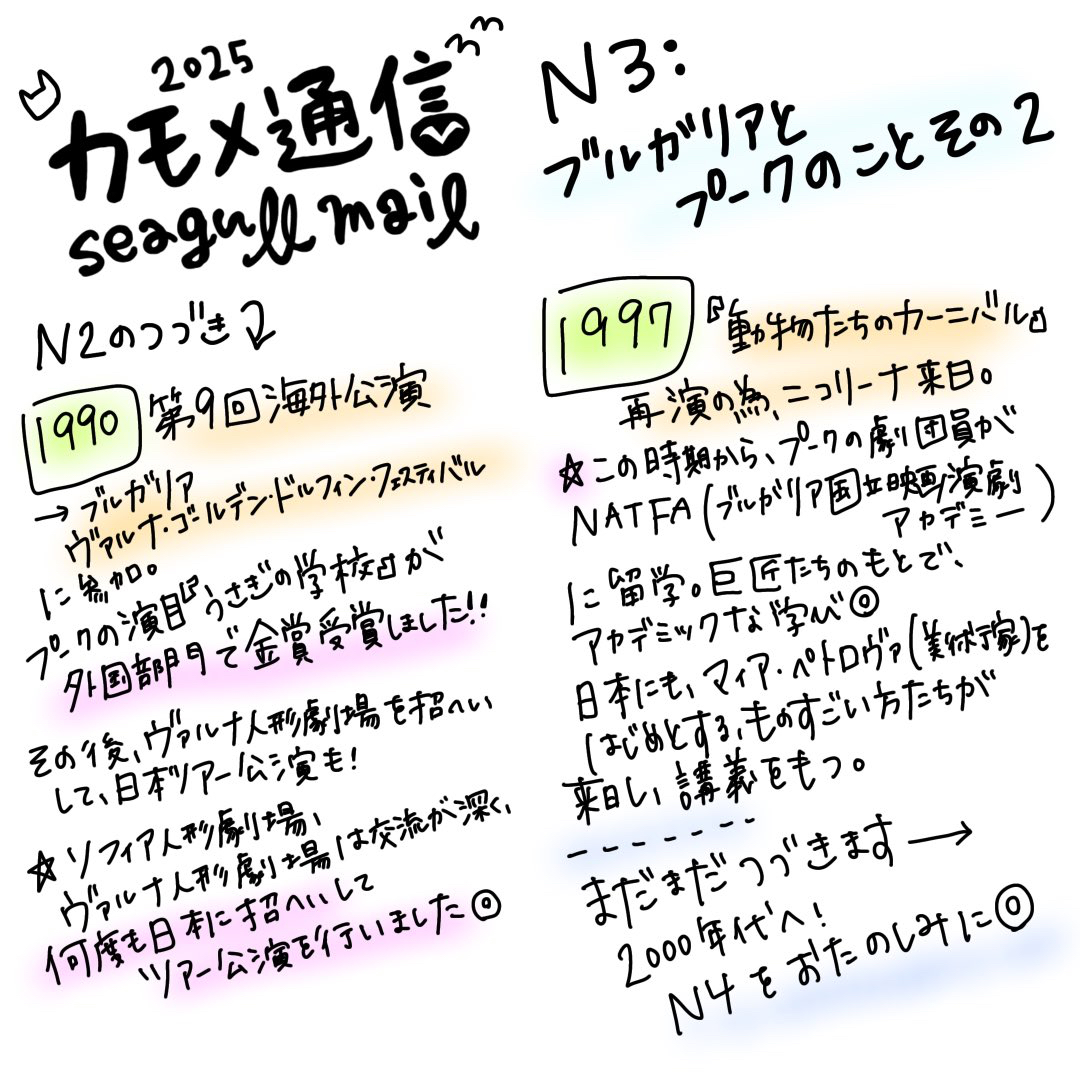 2025
カモメ通信
seagull mail
N2のつづき
1990 第9回海外公演
→ブルガリア
ヴァルナ・ゴールデン・ドルフィン・フェスティバル
に参加。
プークの演目『うさぎの学校』が
外国部門で金賞受賞しました!!
その後、ヴァルナ人形劇場を招へい
して、日本ツアー公演も!
☆ソフィア人形劇場、
ヴァルナ人形劇場は交流が深く、
何度も日本に招へいして
ツアー公演を行いました◎
N3:
ブルガリアと
プークのこと その2
1997 『動物たちのカーニバル』
再演の為、ニコリーナ来日。
☆この時期から、プークの劇団員が
NATFA(ブルガリア国立映画演劇
アカデミー)
に留学。巨匠たちのもとで、
アカデミックな学び◎
日本にも、マィア・ペトロヴァ(美術家)を
はじめとする、ものすごい方たちが
来日し、講義をもつ。
-------
まだまだつづきます→
2000年代へ!
N4をおたのしみに◎